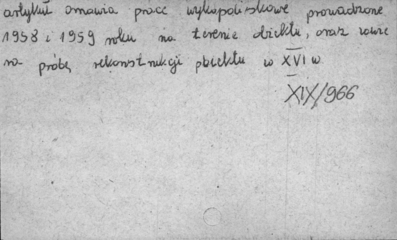 artykuł omawia prace wykopaliskowe prowadzone
1958 i 1959 roku na terenie obiektu, oraz
na próbę rekonstrukcji obiektu w XVI w
XIX/966